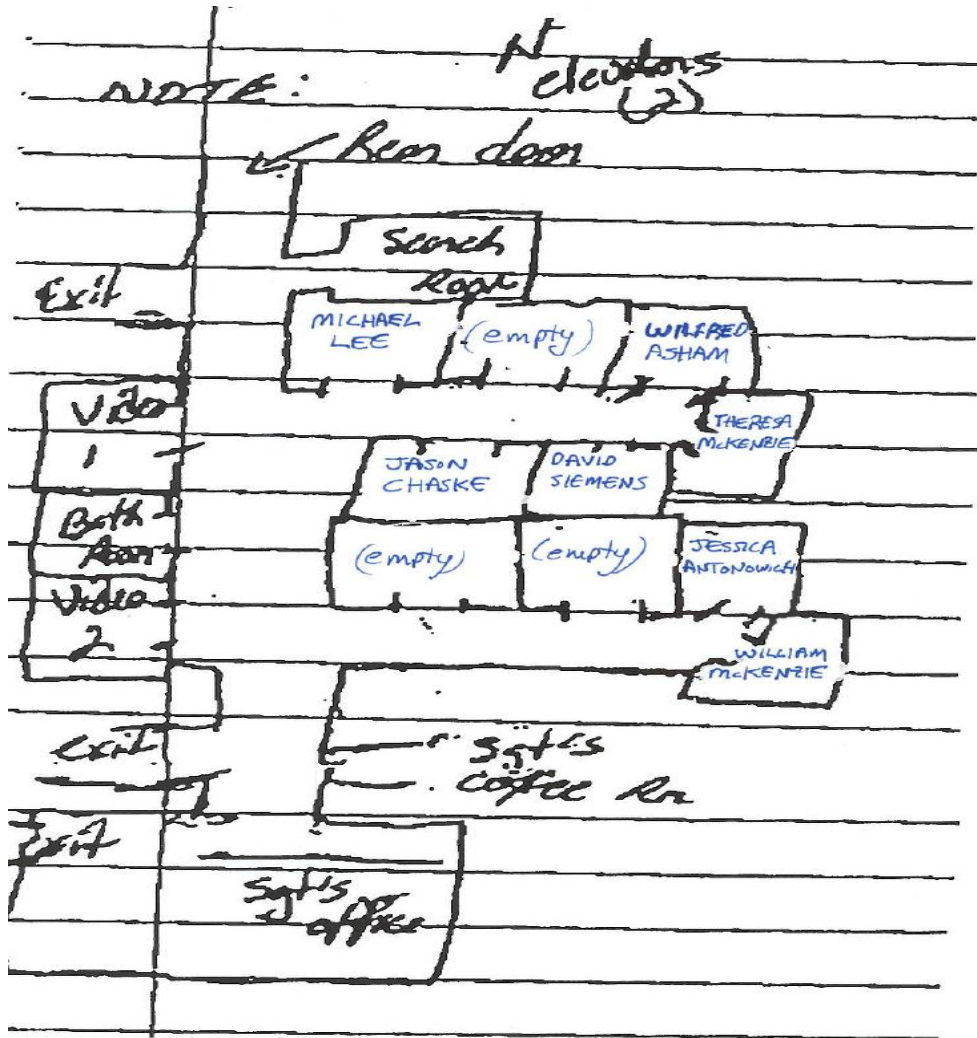 N
elevators
(2)
NOTE:
Rear door
Search
Room
Exit
MICHAEL
LEE
(empty)
WILFRED
ASHAM
Video
1
THERESA
McKENZIE
JASON
CHASKE
DAVID
SIEMENS
Bath
Room
(empty)
(empty)
JESSICA
ANTONOWICH
Video
2
WILLIAM
McKENZIE
exit
Sgt's
coffee Rm
Exit
Sgt's
office